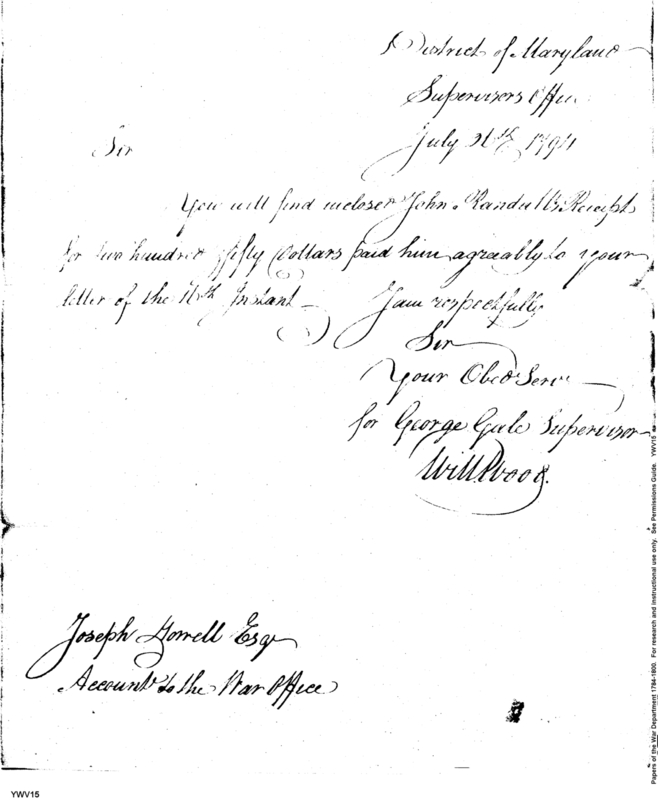 District of Maryland
Supervisors Office
July 31th 1794
Sir
You will find inclosed John Randalls Receipt
for two hundred fifty Dollars paid him agreably to your
letter of the Instant
I am respectfully
Sir
Your Obed Serv
for George Gale Supervisor
Will
Joseph Howell Esqr
Account to the War Office
YWV15
Papers of the War Department 1784-1800. For research and instructional use only. See Permissions Guide. YWV15